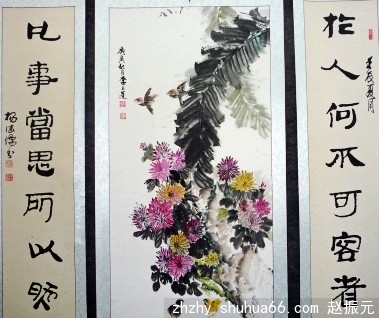 於人何不可容者
壬辰夏月
庚寅秋月李
凡事當思所以
zhzhy.shuhua66.com 赵振元